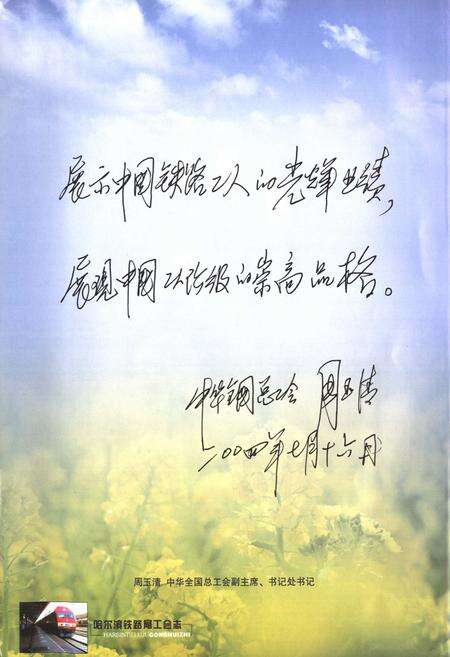 展示中国铁路工人的光辉业绩，
展现中国工人阶级的崇高品格。
中华全国总工会 周玉清
二〇〇四年七月十六日
周玉清 中华全国总工会副主席、书记处书记
哈尔滨铁路局工会志
HAERBINTIELUJU GONGHUIZHI